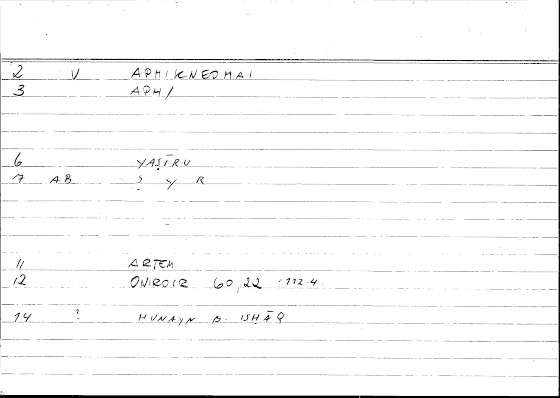 2 V APHIKNEOMAI
3 APH/
6 YAṢĪRU
7 AB Ṣ Y R
11 ARTEM
12 ONIROCR 60,22 112.4
14 ? HUNAYN B. ISḤĀQ